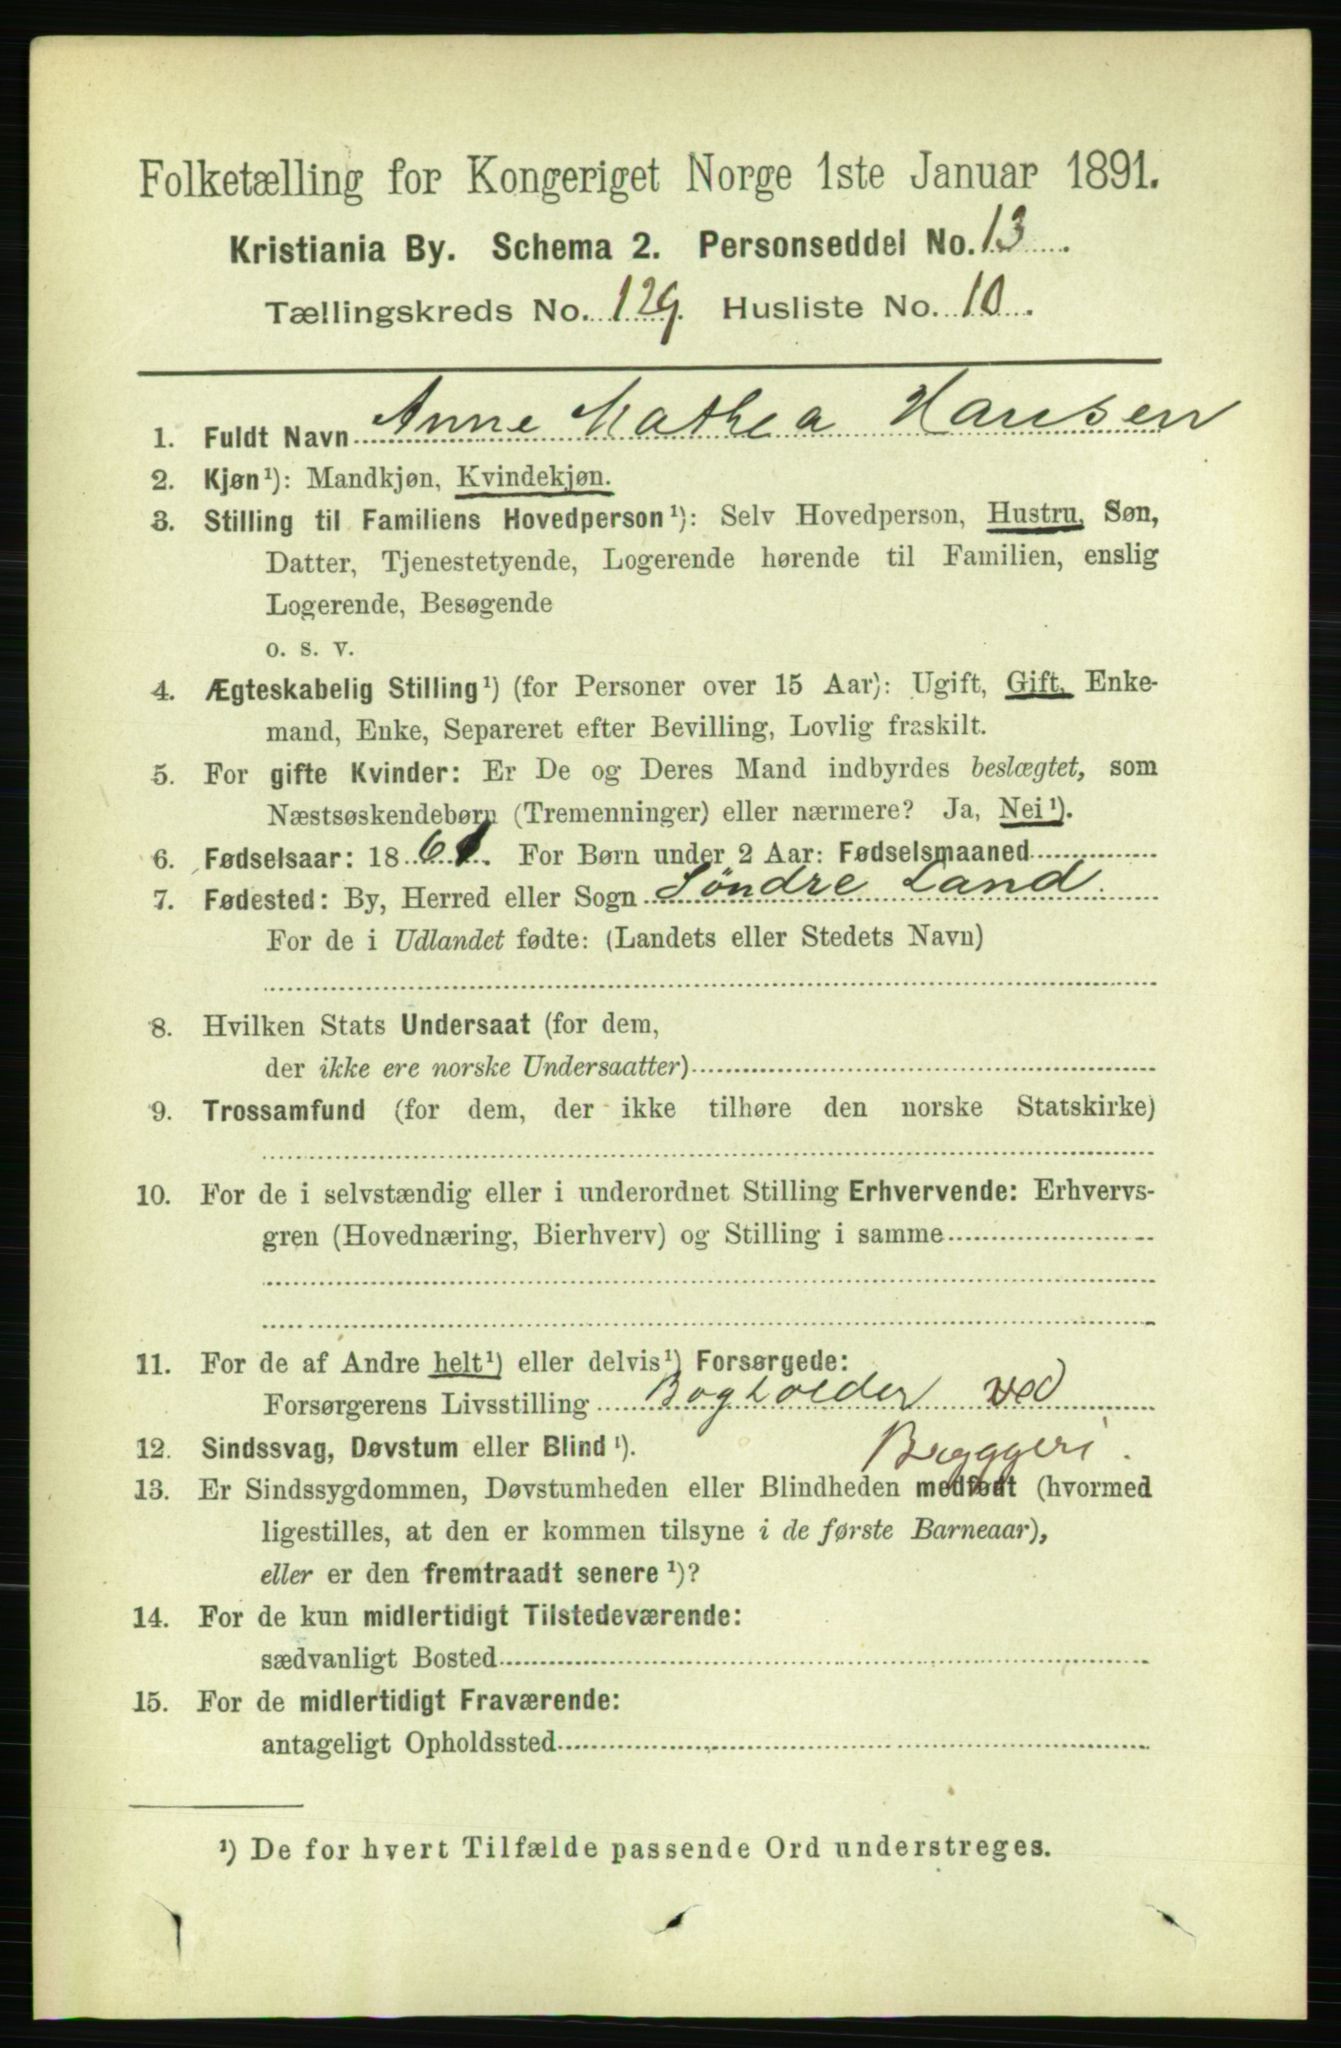 Folketælling for Kongeriget Norge 1ste Januar 1891.
Kristiania By. Schema 2. Personseddel No. 13.
Tællingskreds No. 129. Husliste No. 10.
1. Fuldt Navn Anne Mathea Hansen
2. Kjøn¹): Mandkjøn, Kvindekjøn.
3. Stilling til Familiens Hovedperson¹): Selv Hovedperson, Hustru, Søn,
Datter, Tjenestetyende, Logerende hørende til Familien, enslig
Logerende, Besøgende
o. s. v.
4. Ægteskabelig Stilling¹) (for Personer over 15 Aar): Ugift, Gift, Enke-
mand, Enke, Separeret efter Bevilling, Lovlig fraskilt.
5. For gifte Kvinder: Er De og Deres Mand indbyrdes beslægtet, som
Næstsøskendebørn (Tremenninger) eller nærmere? Ja, Nei¹).
6. Fødselsaar: 1861. For Børn under 2 Aar: Fødselsmaaned
7. Fødested: By, Herred eller Sogn Söndre Land.
For de i Udlandet fødte: (Landets eller Stedets Navn)
8. Hvilken Stats Undersaat (for dem,
der ikke ere norske Undersaatter)
9. Trossamfund (for dem, der ikke tilhøre den norske Statskirke)
10. For de i selvstændig eller i underordnet Stilling Erhvervende: Erhvervs-
gren (Hovednæring, Bierhverv) og Stilling i samme
11. For de af Andre helt¹) eller delvis¹) Forsørgede:
Forsørgerens Livsstilling Bogholder ved
Bryggeri.
12. Sindssvag, Døvstum eller Blind¹).
13. Er Sindssygdommen, Døvstumheden eller Blindheden medfødt (hvormed
ligestilles, at den er kommen tilsyne i de første Barneaar),
eller er den fremtraadt senere¹)?
14. For de kun midlertidigt Tilstedeværende:
sædvanligt Bosted
15. For de midlertidigt Fraværende:
antageligt Opholdssted
¹) De for hvert Tilfælde passende Ord understreges.